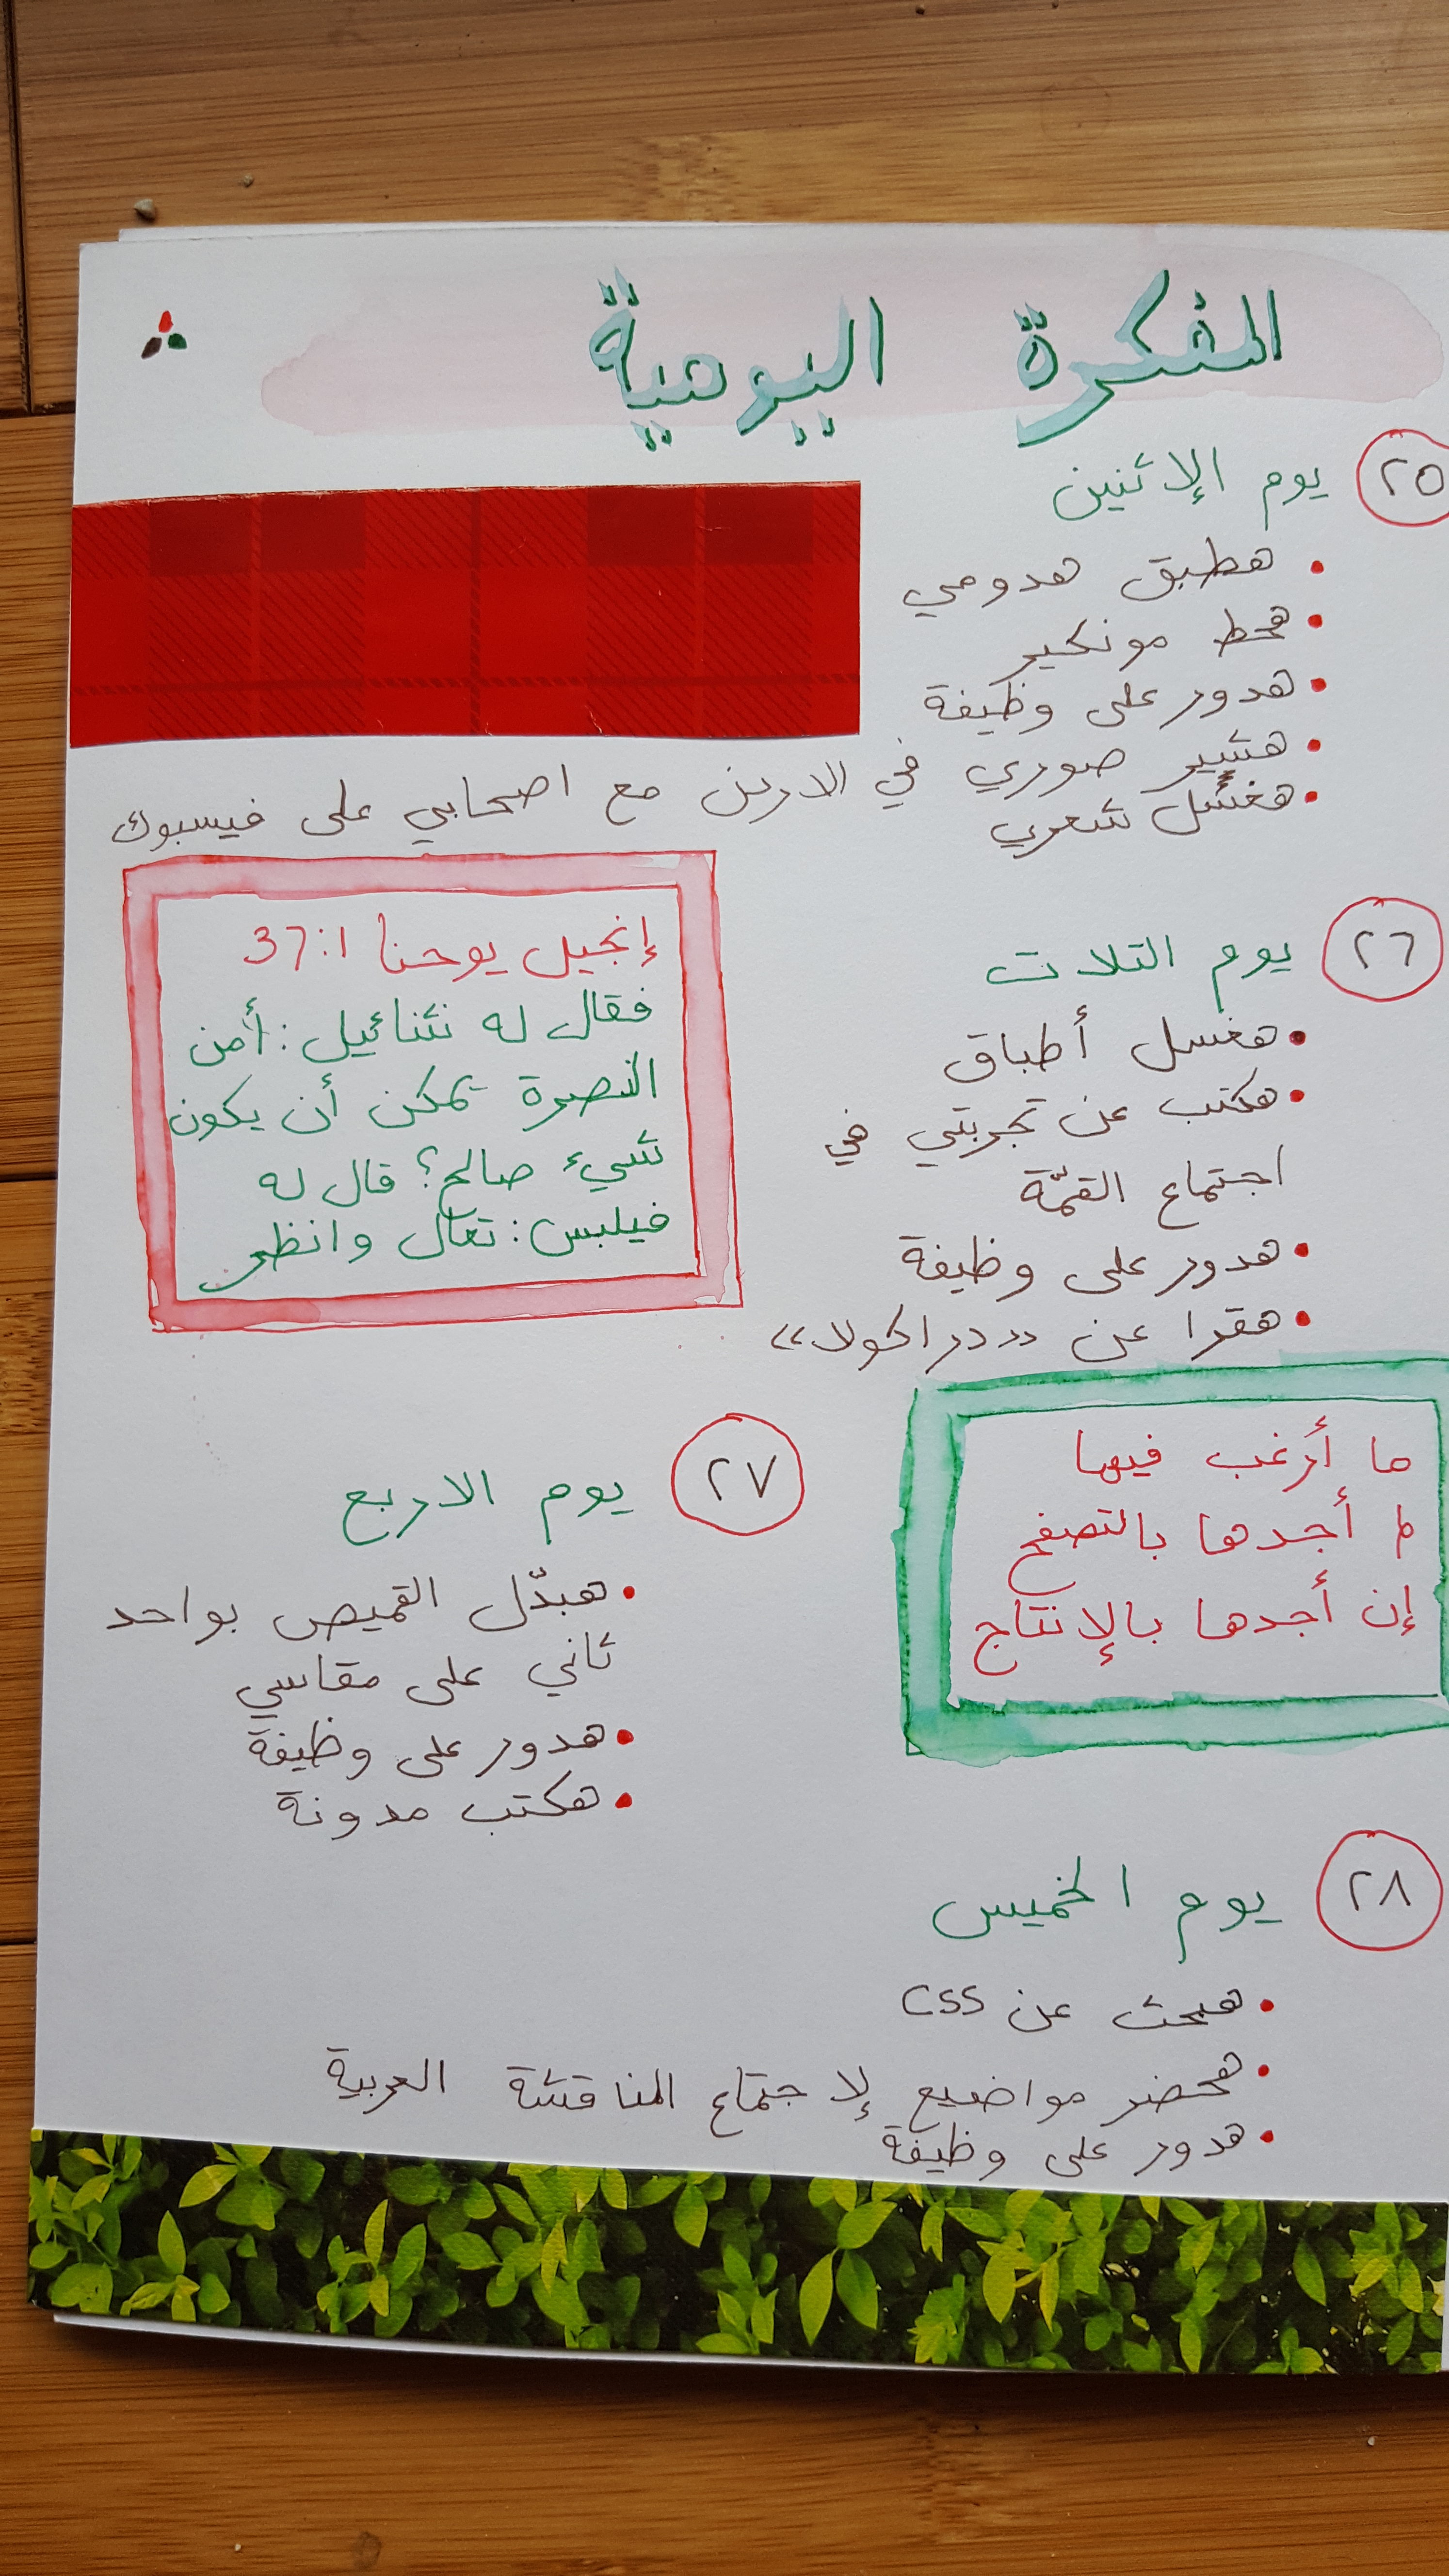 المفكرة اليومية
٢٥ يوم الإثنين
هطبق هدومي
هحط مونكير
هدور على وظيفة
هشير صوري في الاردن مع اصحابي على فيسبوك
هغسل شعري
٢٦ يوم التلات
هغسل أطباق
هكتب عن تجربتي في
اجتماع القمّة
هدور على وظيفة
هقرا عن «دراكولا»
إنجيل يوحنا 37:1
فقال له نثنائيل: أمن
النصرة يمكن أن يكون
شيء صالح؟ قال له
فيلبس: تعال وانظر
ما أرغب فيها
لم أجدها بالتصفح
إن أجدها بالإنتاج
٢٧ يوم الاربع
هبدّل القميص بواحد
تاني على مقاسي
هدور على وظيفة
هكتب مدونة
٢٨ يوم الخميس
هبحث عن CSS
هحضر مواضيع لإجتماع المناقشة العربية
هدور على وظيفة